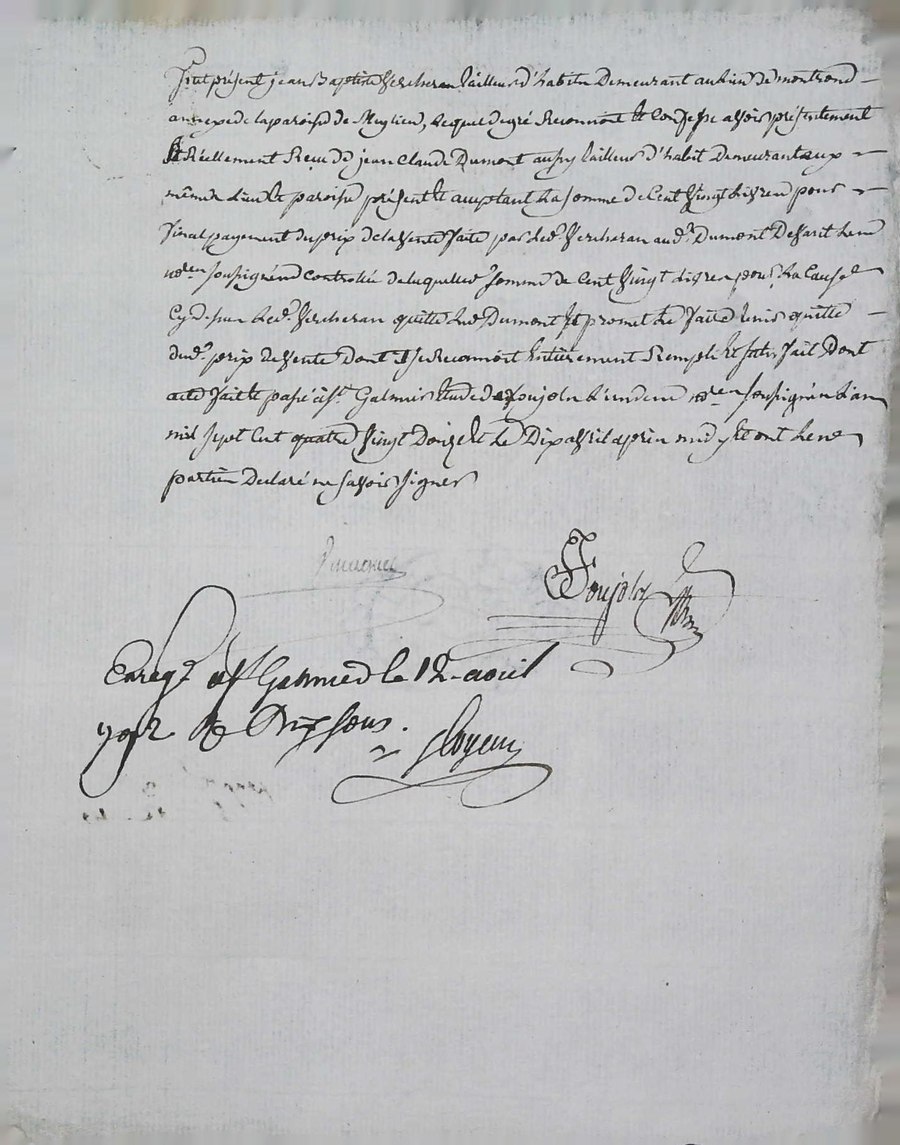 fut présent jean Baptiste Vercheran tailleur d'habits Demeurant au lieu de montrond
annexe de la paroisse de Meylieu, Lequel de gré Reconnoit Et Confesse avoir présentement
Et Réellement Reçu de jean Claude Dumont aussy tailleur d'habit Demeurant aux
même lieu Et paroisse présent Et acceptant La somme de Cent Vingt Livres pour
final payement du prix de la Vente faite par led. Vercheran aud. Dumont Devant Les
nores soussignés Controllée de laquelle somme de Cent Vingt Livres pour La Cause
Cy Dessus Led. Vercheran quitte led. Dumont Et promet Le faire tenir quitte
dud. prix De Vente Dont il se Reconnoit Entièrement Rempli Et satisfait Dont
acte fait Et passé à St. Galmier Etude de Poujolr L'un des nores soussignés L'an
mil sept Cent quatre Vingt Douze Et Le Dix avril après midy Et ont Les
parties Declaré ne savoir signer
Poujolr
Enregé à St Galmier le 12 avril
1792 Rç Dix sous.